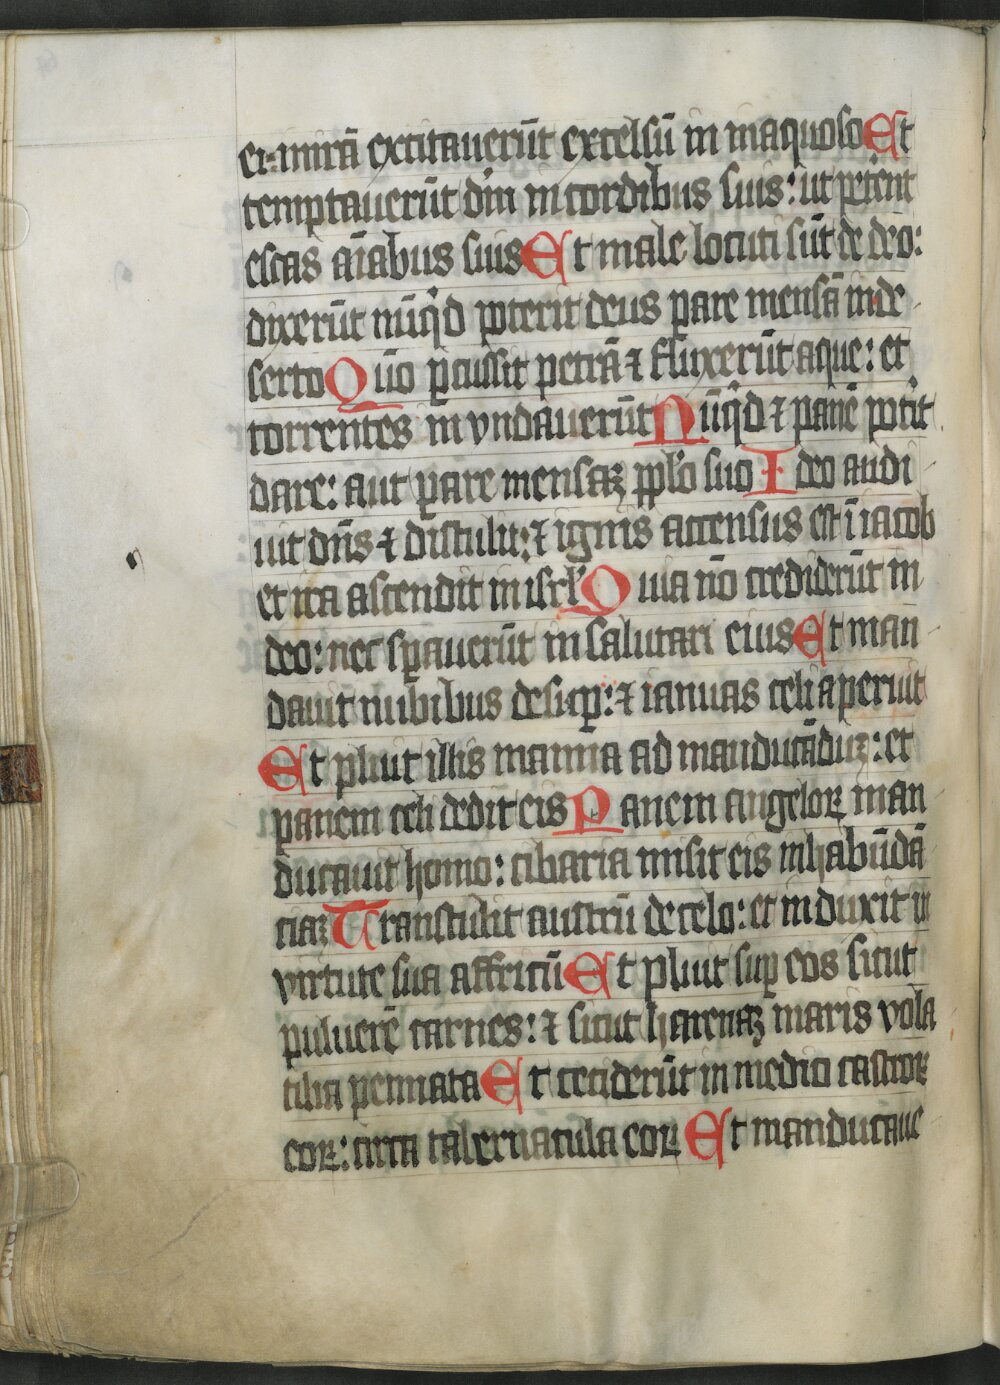 ei: in irā excitauerūt excelsū in inaquoso Et
temptauerūt dm̄ in cordibus suis: ut peterēnt
escas aīabus suis Et male locuti sūt de deo:
dixerūt nūqͥd poterit deus ꝑare mensā in de
serto Qūo ꝑcussit petrā ⁊ fluxerūt aque: et
torrentes in vndauerūt Nūqͥd ⁊ panē potͥit
dare: aut ꝑare mensaꝫ pplo suo Ideo audi
uit dn̄s ⁊ distulit: ⁊ ignis accensus est ī iacob
et ira ascendit in isrl̓ Quia nō crediderūt in
deo: nec sꝑauerūt in salutari eius Et man
dauit nubibus desuꝑ: ⁊ ianuas celi aperuit
Et pluit illis manna ad manducāduꝫ: et
panem celi dedit eis Panem angeloꝝ man
ducauit homo: cibaria misit eis in habūdā
ciaꝫ Transtulit austrū de celo: et induxit in
virtute sua affricū Et pluit suꝑ eos sicut
puluerē carnes: ⁊ sicut harenaꝫ maris vola
tilia pennata Et ceciderūt in medio castroꝝ
eoꝝ: circa tabernacula eoꝝ Et manducaue